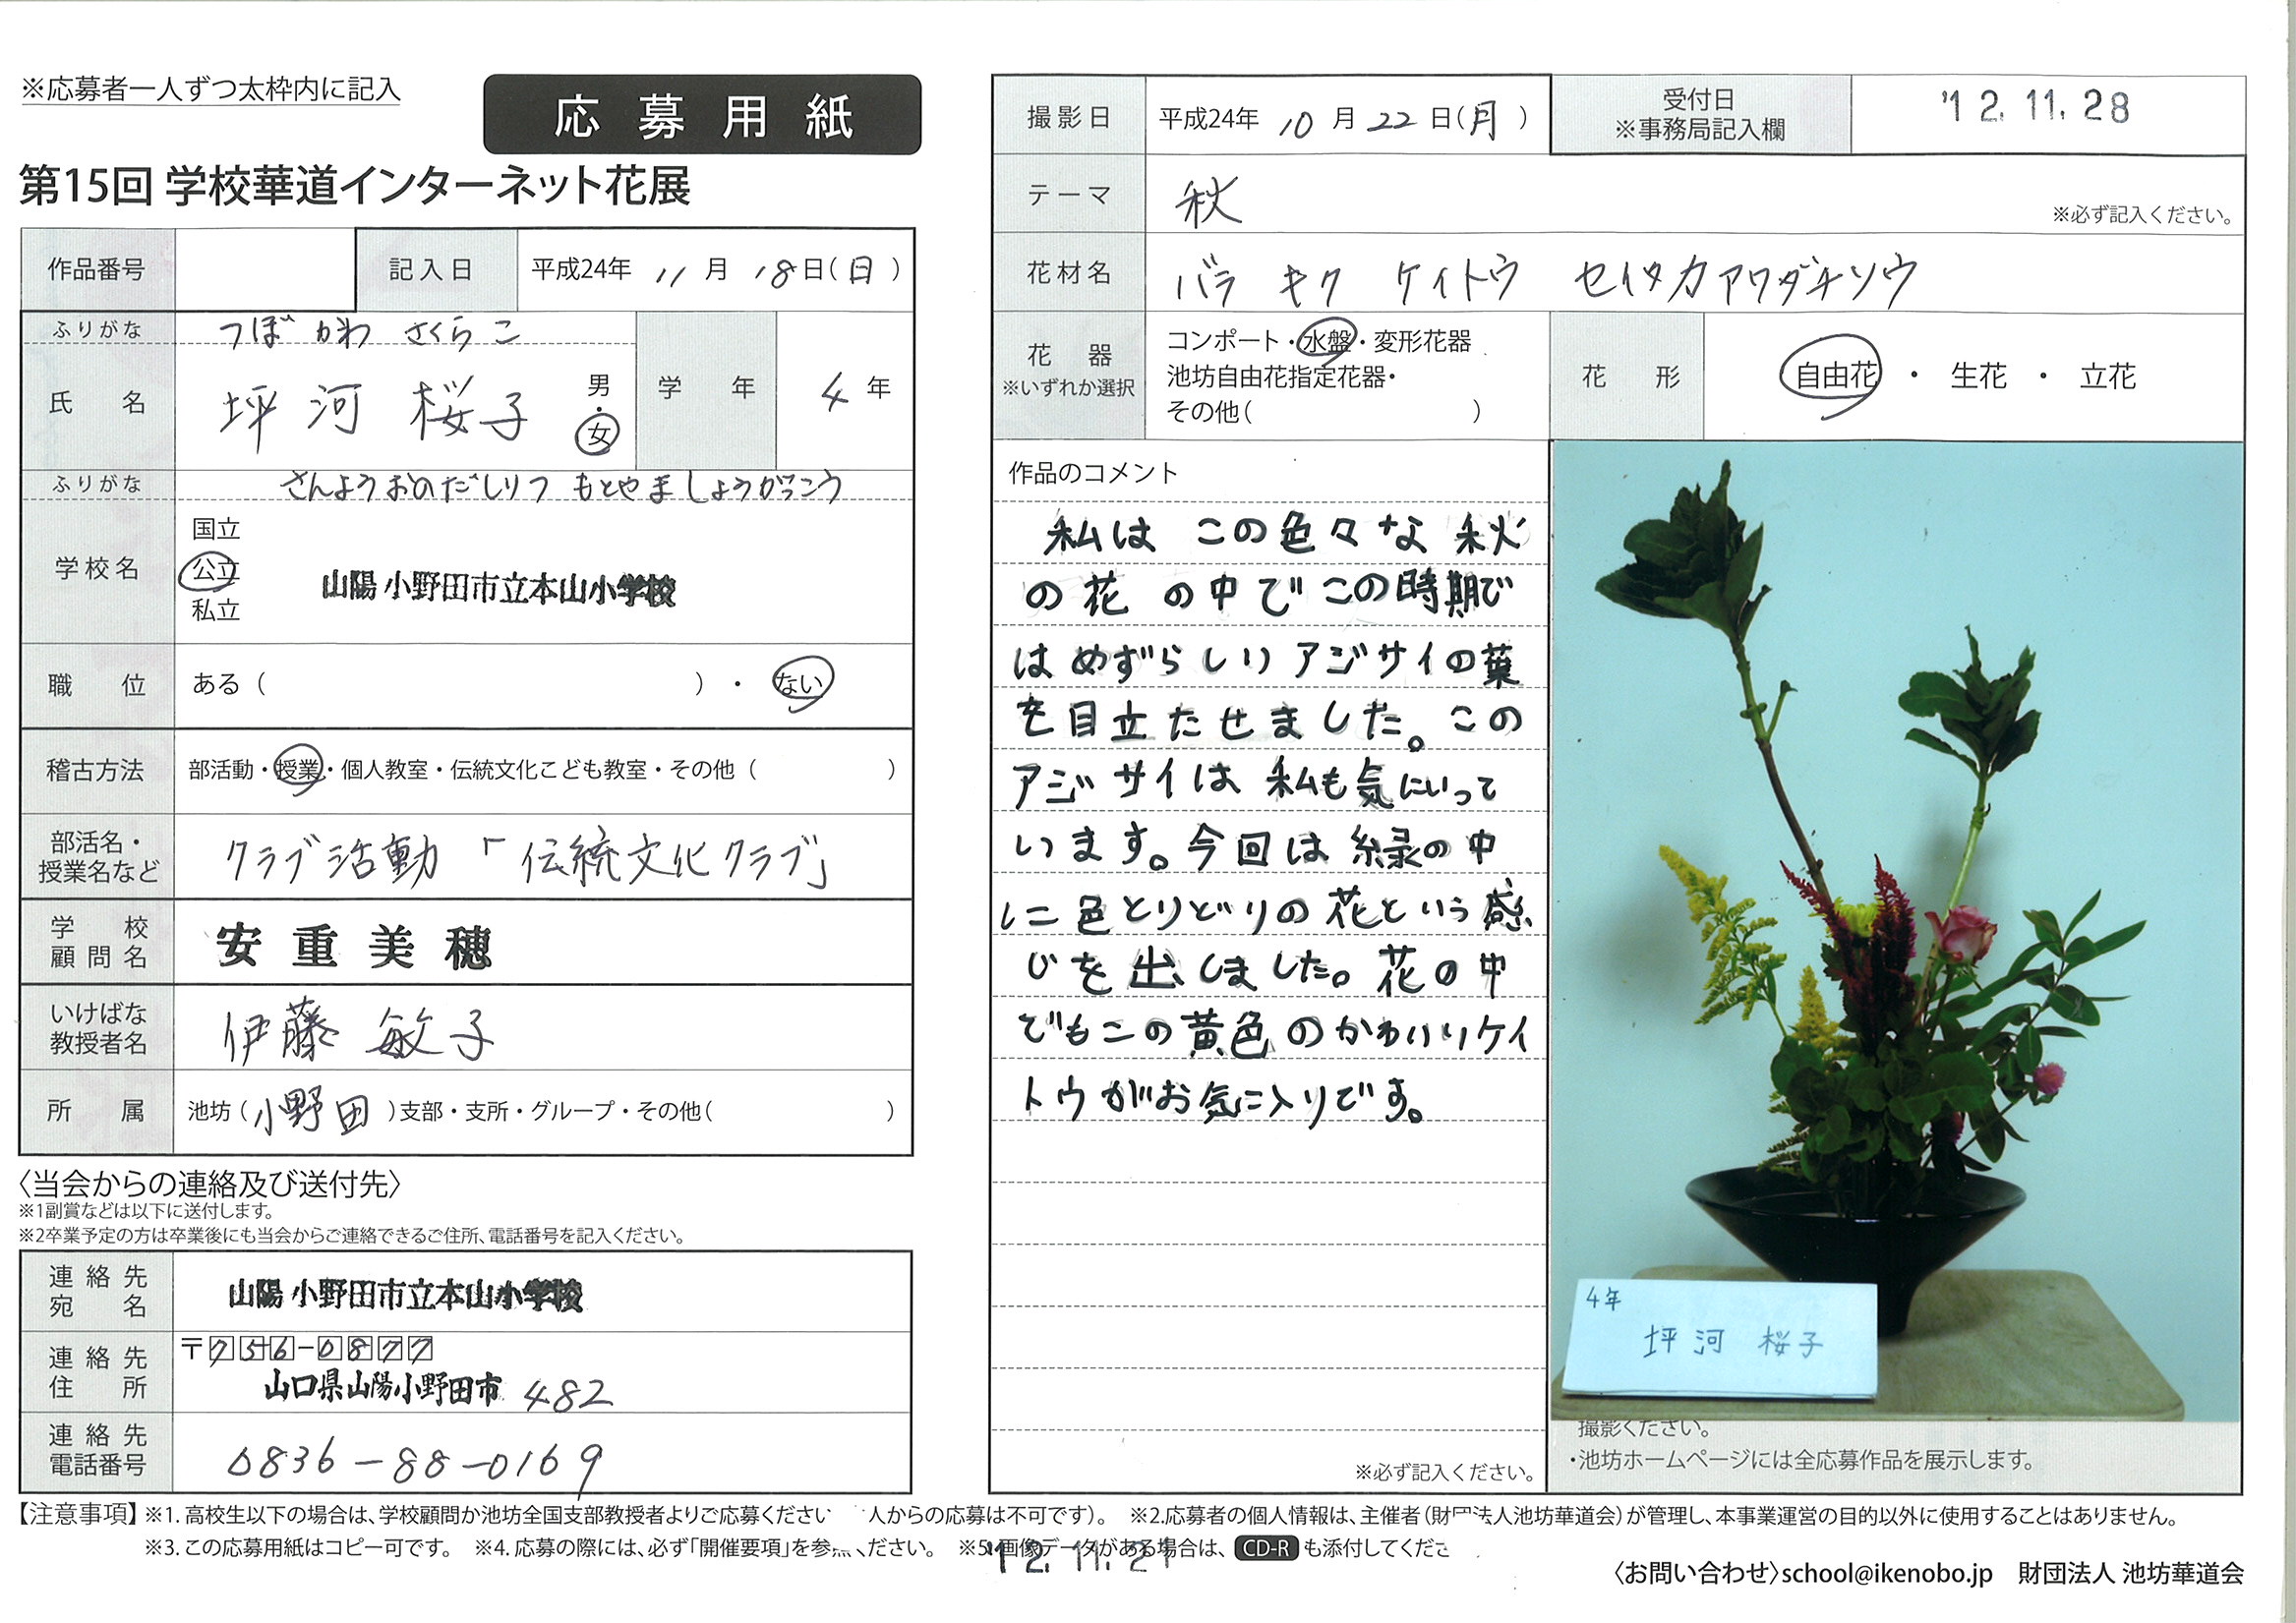 ※応募者一人ずつ太枠内に記入
応募用紙
第15回 学校華道インターネット花展
作品番号
記入日 平成24年 11月 18日(日)
ふりがな つぼかわ さくらこ
氏名 坪河 桜子 男・女
学年 4年
ふりがな さんようおのだしりつ もとやましょうがっこう
学校名 国立 公立 私立 山陽小野田市立本山小学校
職位 ある( )・ない
稽古方法 部活動・授業・個人教室・伝統文化こども教室・その他( )
部活名・授業名など クラブ活動「伝統文化クラブ」
学校顧問名 安重美穂
いけばな教授者名 伊藤 敏子
所属 池坊(小野田)支部・支所・グループ・その他( )
〈当会からの連絡及び送付先〉
※1副賞などは以下に送付します。
※2卒業予定の方は卒業後にも当会からご連絡できるご住所、電話番号を記入ください。
連絡先宛名 山陽小野田市立本山小学校
連絡先住所 〒756-0877
山口県山陽小野田市 482
連絡先電話番号 0836-88-0169
撮影日 平成24年 10月 22日(月)
受付日 ※事務局記入欄 '12.11.28
テーマ 秋 ※必ず記入ください。
花材名 バラ キク ケイトウ セイタカアワダチソウ
花器 ※いずれか選択 コンポート・水盤・変形花器
池坊自由花指定花器・
その他( )
花形 自由花・生花・立花
作品のコメント
私は この色々な 秋
の花 の中で この時期で
はめずらしい アジサイの葉
を目立たせました。この
アジサイは 私も気にいって
います。今回は 緑の中
に色とりどりの花という感
じを出しました。花の中
でもこの黄色のかわいいケイ
トウがお気に入りです。
※必ず記入ください。
4年
坪河 桜子
撮影ください。
・池坊ホームページには全応募作品を展示します。
【注意事項】※1. 高校生以下の場合は、学校顧問か池坊全国支部教授者よりご応募ください 人からの応募は不可です)。 ※2.応募者の個人情報は、主催者(財団法人池坊華道会)が管理し、本事業運営の目的以外に使用することはありません。
※3. この応募用紙はコピー可です。 ※4. 応募の際には、必ず「開催要項」を参 ください。 ※5.画像データがある場合は、CD-Rも添付してくださ
〈お問い合わせ〉school@ikenobo.jp 財団法人 池坊華道会